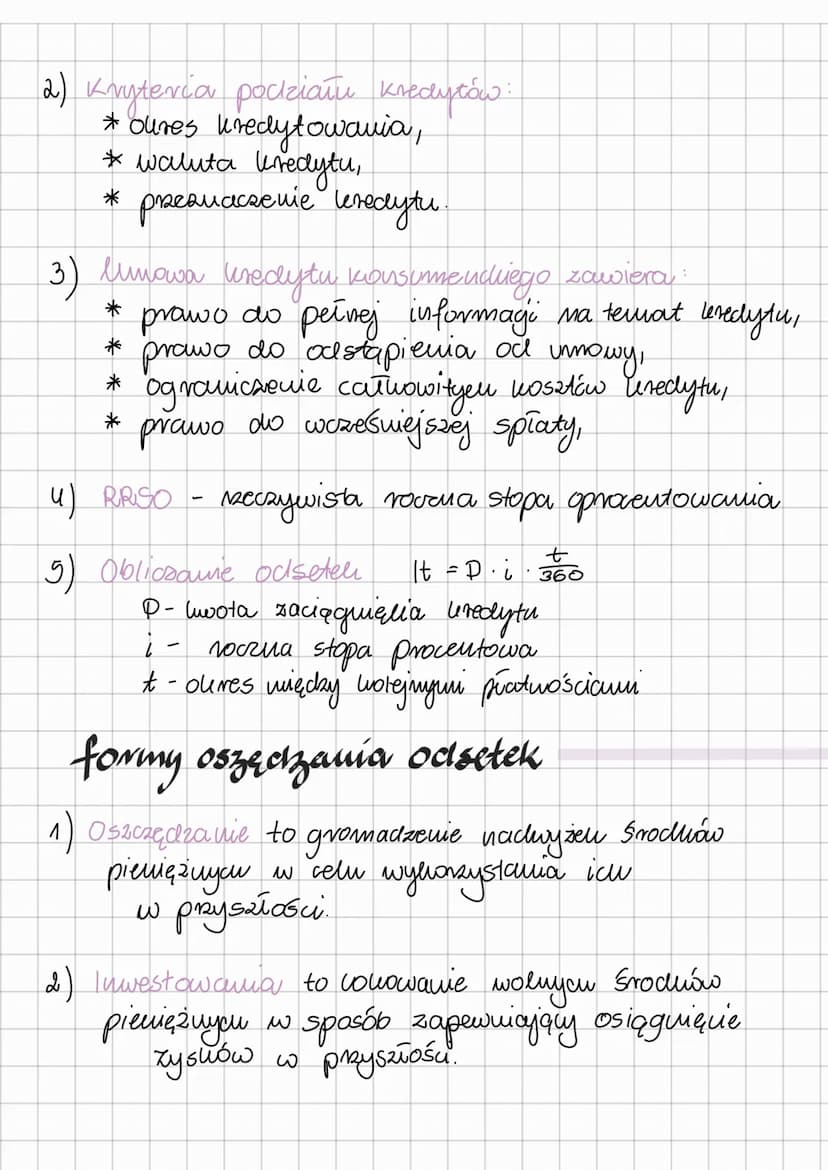 2) Kryteria podziału kredytów:
* okres kredytowania,
* waluta kredytu,
* przeznaczenie kredytu.
3) Umowa kredytu konsumenckiego zawiera:
* prawo do pełnej informacji na temat kredytu,
* prawo do odstąpienia od umowy,
* ograniczenie całkowitych kosztów kredytu,
* prawo do wcześniejszej spłaty,
4) RRSO - rzeczywista roczna stopa oprocentowania
5) Obliczanie odsetek It = D · i · t/360
D - kwota zaciągnięcia kredytu
i - roczna stopa procentowa
t - okres między kolejnymi płatnościami
formy oszędzania odsetek
1) Oszczędzanie to gromadzenie nadwyżek środków
pieniężnych w celu wykorzystania ich
w przyszłości.
2) Inwestowania to lokowanie wolnych środków
pieniężnych w sposób zapewniający osiągnięcie
zysków w przyszłości.